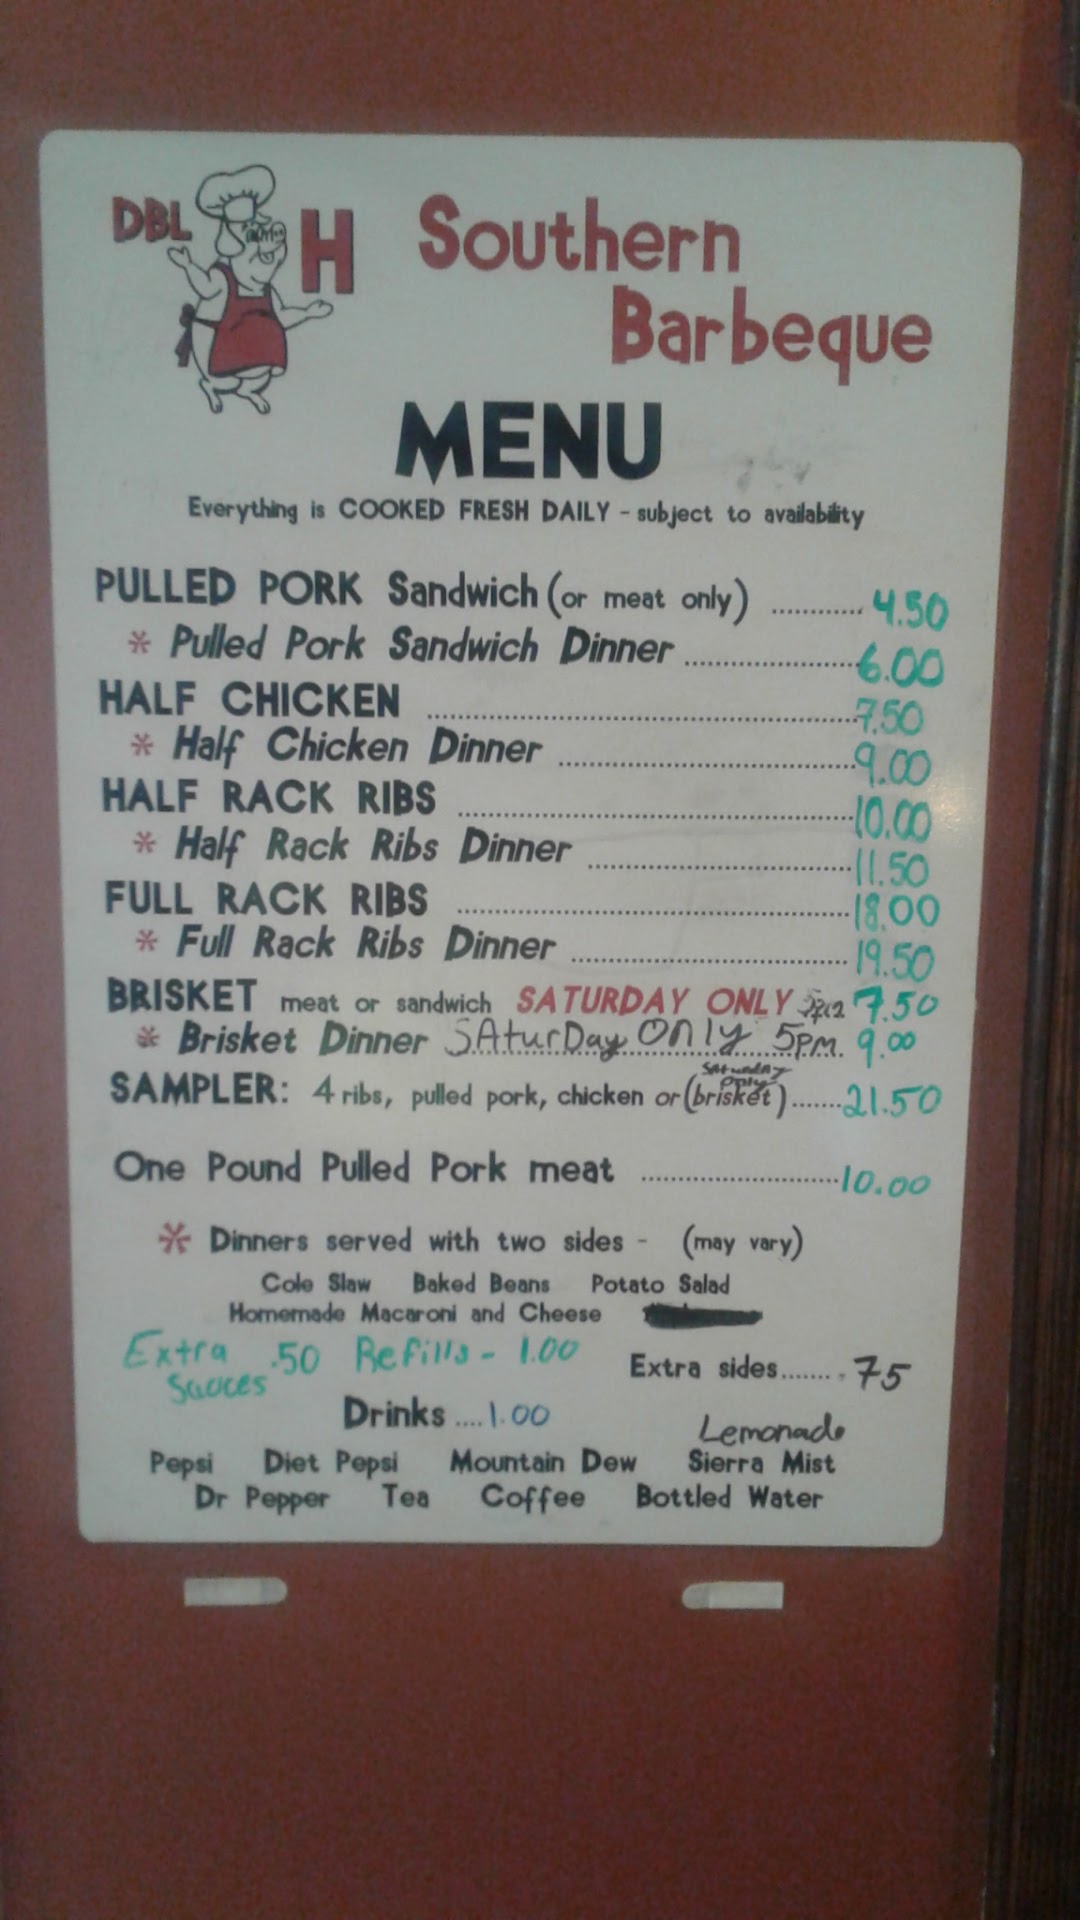 DBL H Southern
Barbeque
MENU
Everything is COOKED FRESH DAILY - subject to availability
PULLED PORK Sandwich (or meat only) ............ 4.50
* Pulled Pork Sandwich Dinner .................... 6.00
HALF CHICKEN .................... 7.50
* Half Chicken Dinner .................... 9.00
HALF RACK RIBS .................... 10.00
* Half Rack Ribs Dinner .................... 11.50
FULL RACK RIBS .................... 18.00
* Full Rack Ribs Dinner .................... 19.50
BRISKET meat or sandwich SATURDAY ONLY 7.50
* Brisket Dinner SAturDay ONly 5PM. 9.00
Saturday
only
SAMPLER: 4 ribs, pulled pork, chicken or (brisket) ....... 21.50
One Pound Pulled Pork meat .................... 10.00
* Dinners served with two sides - (may vary)
Cole Slaw Baked Beans Potato Salad
Homemade Macaroni and Cheese
Extra .50 Refills - 1.00
Sauces
Extra sides....... .75
Drinks ....1.00
Lemonade
Pepsi Diet Pepsi Mountain Dew Sierra Mist
Dr Pepper Tea Coffee Bottled Water